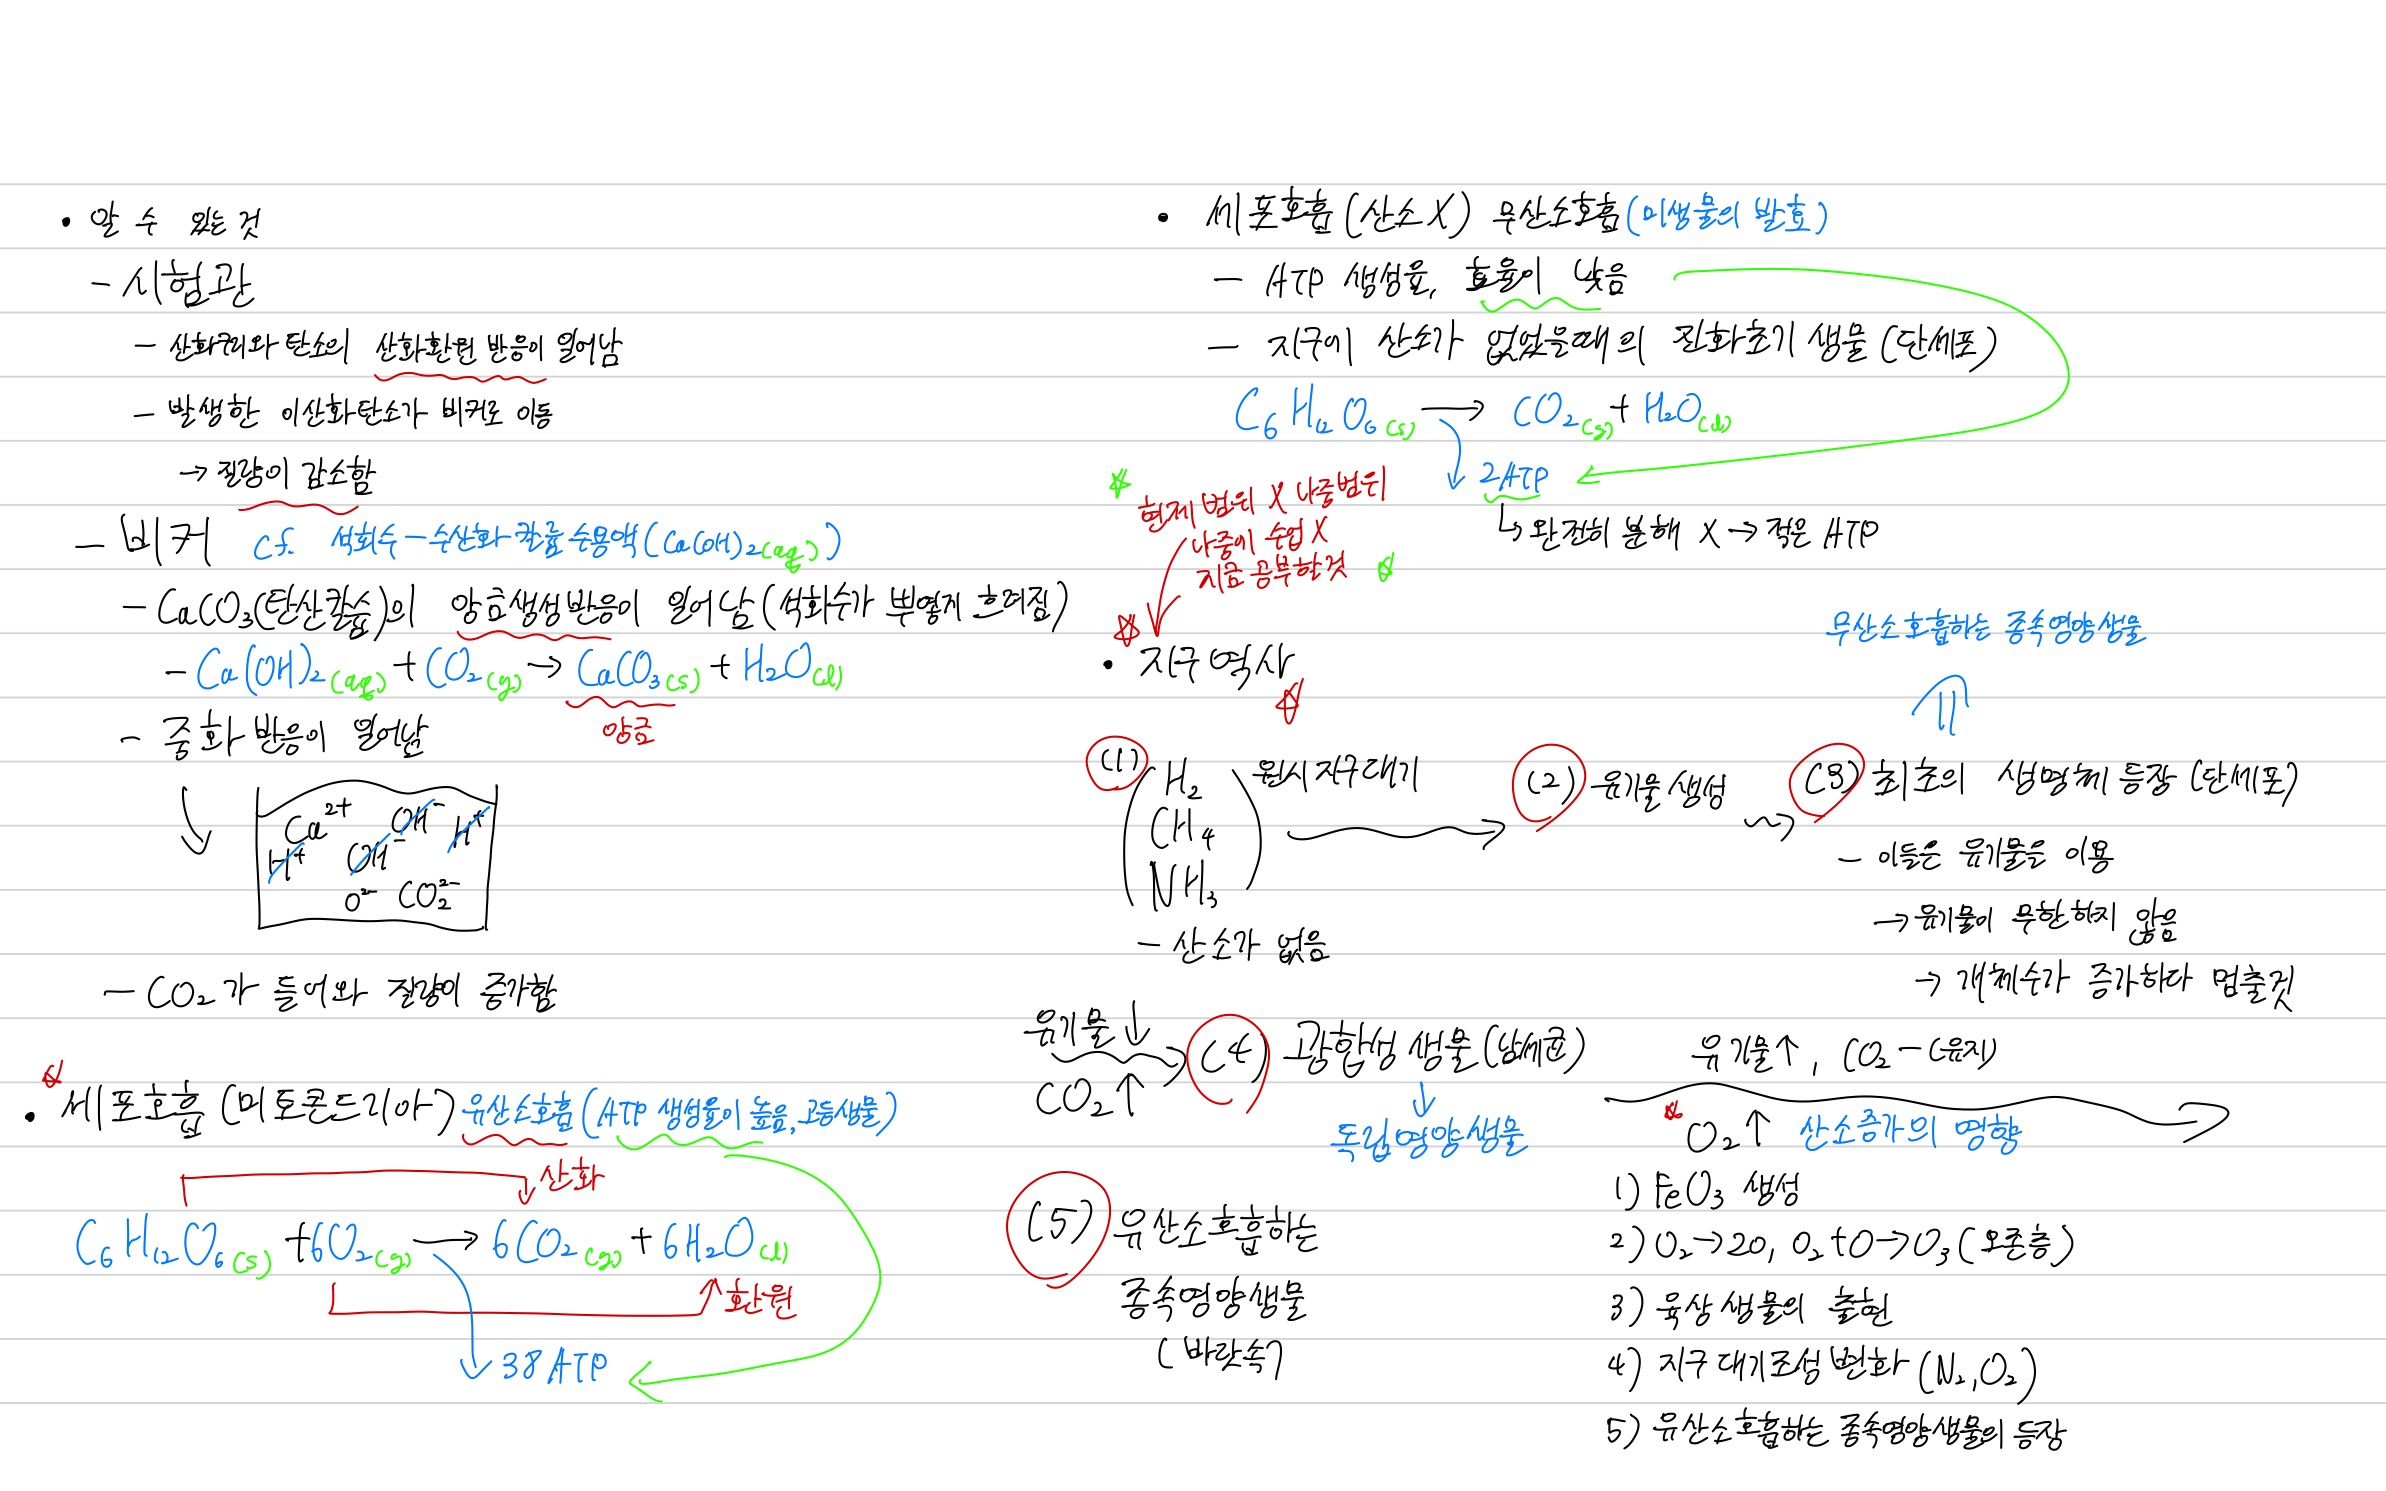 • 알 수 있는 것
- 시험관
- 산화구리와 탄소의 산화환원 반응이 일어남
- 발생한 이산화탄소가 비커로 이동
→ 질량이 감소함
- 비커 cf. 석회수 - 수산화 칼륨 수용액 (Ca(OH)2(aq))
- CaCO3(탄산칼슘)의 앙금생성반응이 일어남 (석회수가 뿌옇게 흐려짐)
- Ca(OH)2(aq) + CO2(g) → CaCO3(s) + H2O(l)
앙금
- 중화 반응이 일어남
Ca2+ OH- H+
H+ OH-
O2- CO2 2-
- CO2가 들어와 질량이 증가함
• 세포호흡 (미토콘드리아) 유산소호흡 (ATP 생성율이 높음, 고등생물)
산화
C6H12O6(s) + 6O2(g) → 6CO2(g) + 6H2O(l)
환원
38 ATP
• 세포호흡 (산소X) 무산소호흡 (미생물의 발효)
- ATP 생성율, 효율이 낮음
- 지구에 산소가 없었을때의 진화초기 생물 (단세포)
C6H12O6(s) → CO2(g) + H2O(l)
2ATP
↳ 완전히 분해 X → 적은 ATP
현재 범위 X 나중범위
나중에 수업 X
지금 공부할것
• 지구 역사
무산소호흡하는 종속영양생물
(1) H2 원시지구대기
CH4
NH3
- 산소가 없음
(2) 유기물 생성
(3) 최초의 생명체 등장 (단세포)
- 이들은 유기물을 이용
→ 유기물이 무한하지 않음
→ 개체수가 증가하다 멈출것
유기물↓
CO2↑
(4) 광합성 생물 (남세균)
독립영양생물
유기물↑, CO2 - (유지)
O2↑ 산소증가의 영향
1) FeO3 생성
2) O2→2O, O2+O→O3 (오존층)
3) 육상생물의 출현
4) 지구 대기조성 변화 (N2, O2)
5) 유산소호흡하는 종속영양생물의 등장
(5) 유산소호흡하는
종속영양생물
(바닷속)